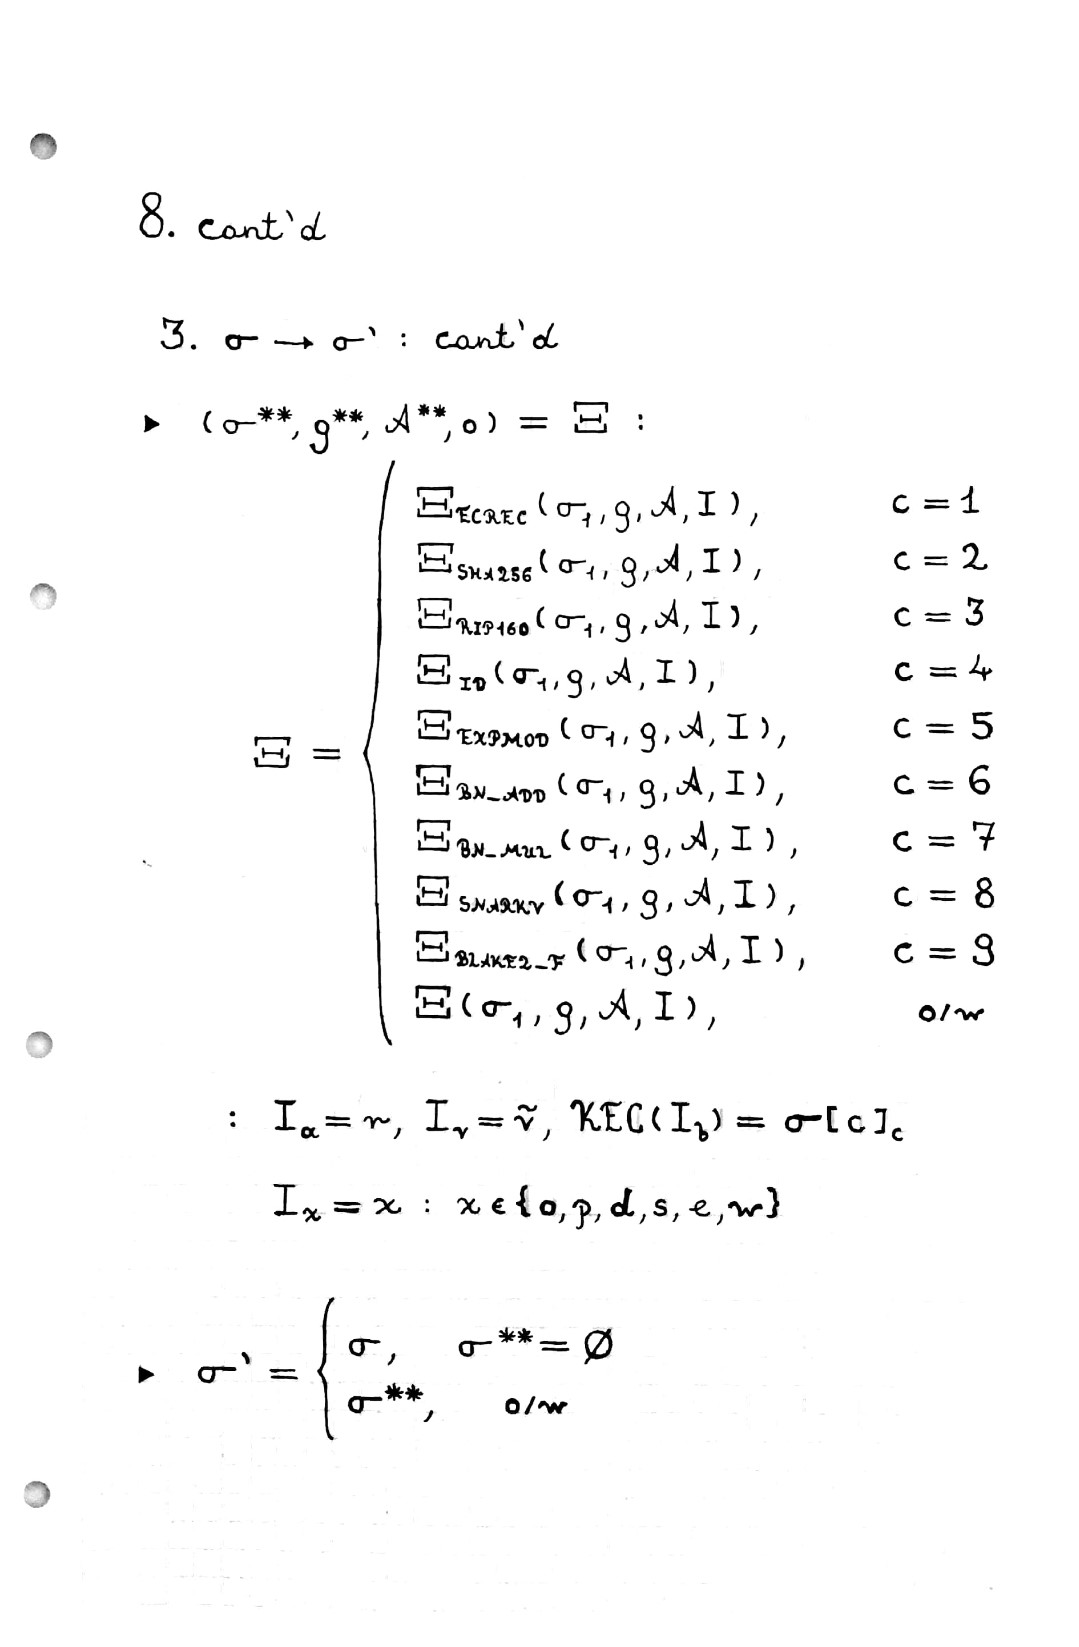 8. cont'd
3. σ → σ' : cont'd
▸ (σ**, g**, A**, o) = Ξ :
Ξ =
Ξ_ECREC(σ₁, g, A, I), c = 1
Ξ_SHA256(σ₁, g, A, I), c = 2
Ξ_RIP160(σ₁, g, A, I), c = 3
Ξ_ID(σ₁, g, A, I), c = 4
Ξ_EXPMOD(σ₁, g, A, I), c = 5
Ξ_BN_ADD(σ₁, g, A, I), c = 6
Ξ_BN_MUL(σ₁, g, A, I), c = 7
Ξ_SNARKV(σ₁, g, A, I), c = 8
Ξ_BLAKE2_F(σ₁, g, A, I), c = 9
Ξ(σ₁, g, A, I), o/w
: I_a = r, I_v = ṽ, KEC(I_b) = σ[c]_c
I_x = x : x ∈ {o, p, d, s, e, w}
▸ σ' =
σ, σ** = Ø
σ**, o/w